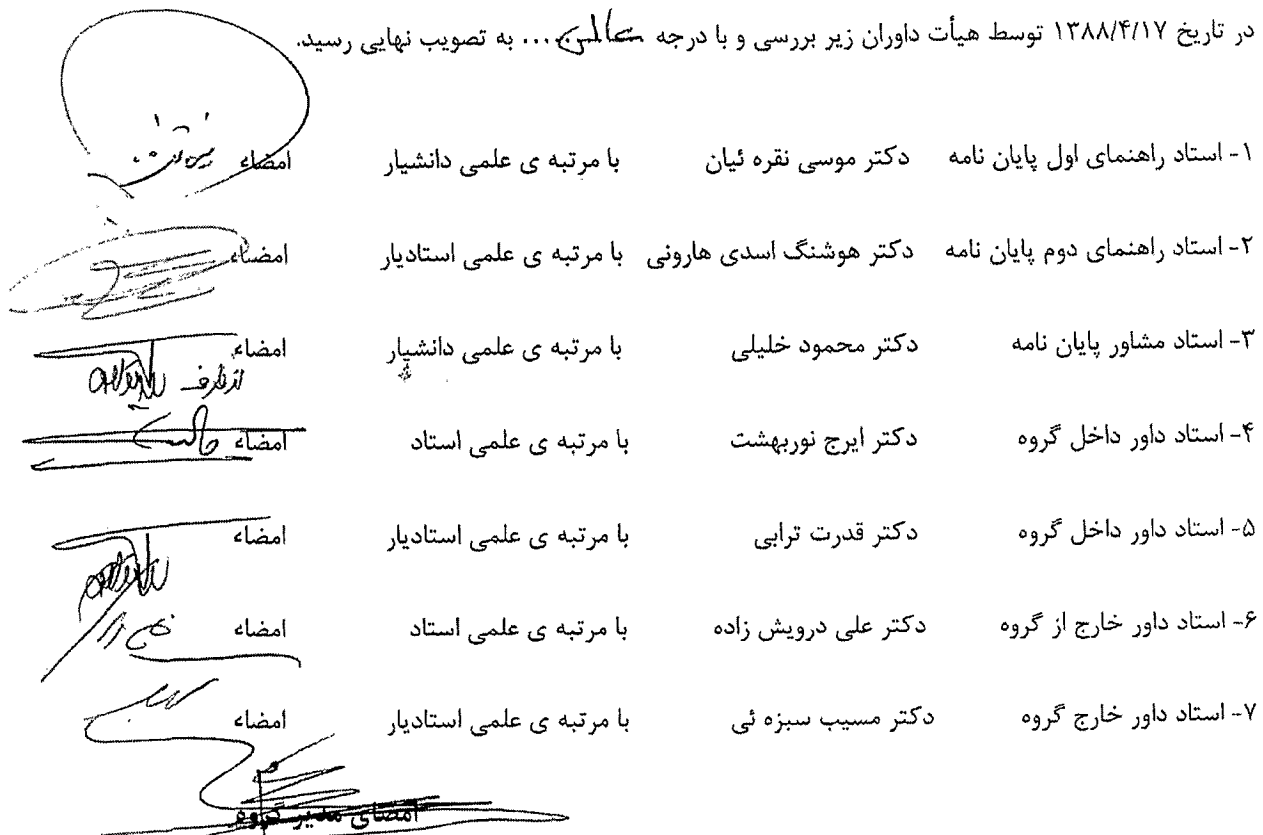 در تاریخ ۱۳۸۸/۴/۱۷ توسط هیأت داوران زیر بررسی و با درجه عالی .... به تصویب نهایی رسید.
۱- استاد راهنمای اول پایان نامه دکتر موسی نقره ئیان با مرتبه ی علمی دانشیار امضاء
۲- استاد راهنمای دوم پایان نامه دکتر هوشنگ اسدی هارونی با مرتبه ی علمی استادیار امضاء
۳- استاد مشاور پایان نامه دکتر محمود خلیلی با مرتبه ی علمی دانشیار امضاء
از طرف
۴- استاد داور داخل گروه دکتر ایرج نوربهشت با مرتبه ی علمی استاد امضاء
۵- استاد داور داخل گروه دکتر قدرت ترابی با مرتبه ی علمی استادیار امضاء
۶- استاد داور خارج از گروه دکتر علی درویش زاده با مرتبه ی علمی استاد امضاء
۷- استاد داور خارج گروه دکتر مسیب سبزه ئی با مرتبه ی علمی استادیار امضاء
امضای مدیر گروه